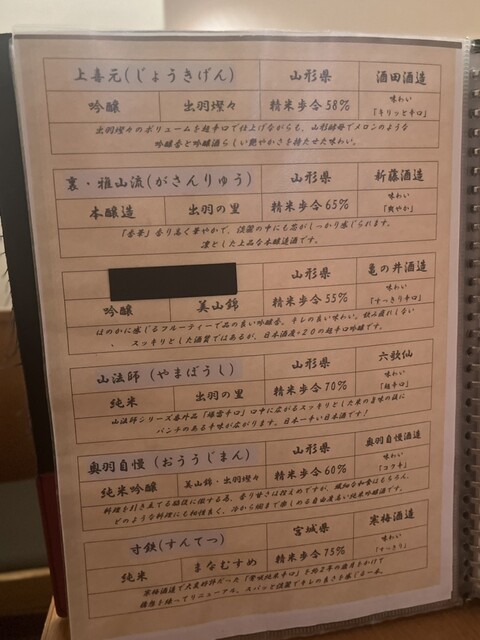 上喜元(じょうきげん) 山形県 酒田酒造
吟醸 出羽燦々 精米歩合58% 味わい
「キリッと辛口」
出羽燦々のボリュームを超辛口で仕上げながらも、山形酵母でメロンのような
吟醸香と吟醸酒らしい艶やかさを持たせた味わい。
裏・雅山流(がさんりゅう) 山形県 新藤酒造
本醸造 出羽の里 精米歩合65% 味わい
「爽やか」
「香華」香り高く華やかで、淡麗の中にも芯がしっかり感じられます。
凛とした上品な本醸造酒です。
山形県 亀の井酒造
吟醸 美山錦 精米歩合55% 味わい
「すっきり辛口」
ほのかに感じるフルーティーで品の良い吟醸香、キレの良い味わい。飲み疲れしない
、スッキリとした酒質ではあるが、日本酒度+20の超辛口吟醸です。
山法師(やまぼうし) 山形県 六歌仙
純米 出羽の里 精米歩合70% 味わい
「超辛口」
山法師シリーズ番外品「爆雷辛口」口中に広がるスッキリとした米の旨味の後に
パンチのある辛味が広がります。日本一辛い日本酒です!
奥羽自慢(おううじまん) 山形県 奥羽自慢酒造
純米吟醸 美山錦・出羽燦々 精米歩合60% 味わい
「コク辛」
料理を引き立てる脇役に徹する為、香り甘さは控えめですが、繊細な和食はもちろん、
どのような料理にも相性良く、冷から燗まで楽しめる自由度高い純米吟醸酒です。
寸鉄(すんてつ) 宮城県 寒梅酒造
純米 まなむすめ 精米歩合75% 味わい
「すっきり」
寒梅酒造で大変好評だった「宮城純米辛口」を約2年の歳月をかけて
構想を練ってリニューアル。スパッと淡麗でキレの良さを感じる一本。